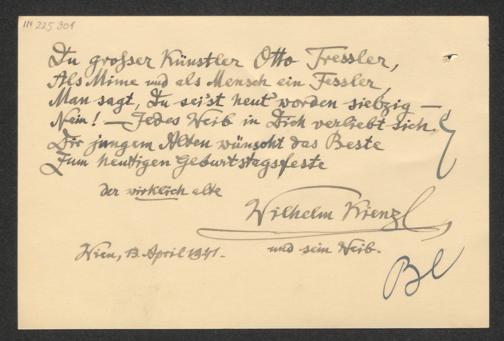 IN 225.301
Du grosser Künstler Otto Tressler,
Als Mime und als Mensch ein Fessler,
Man sagt, Du sei'st heut' worden siebzig —
Nein! — Jedes Weib in Dich verliebt sich.
Dir jungem Alten wünscht das Beste
Zum heutigen Geburtstagsfeste
der wirklich alte
Wilhelm Kienzl
und sein Weib.
Wien, 13. April 1941.